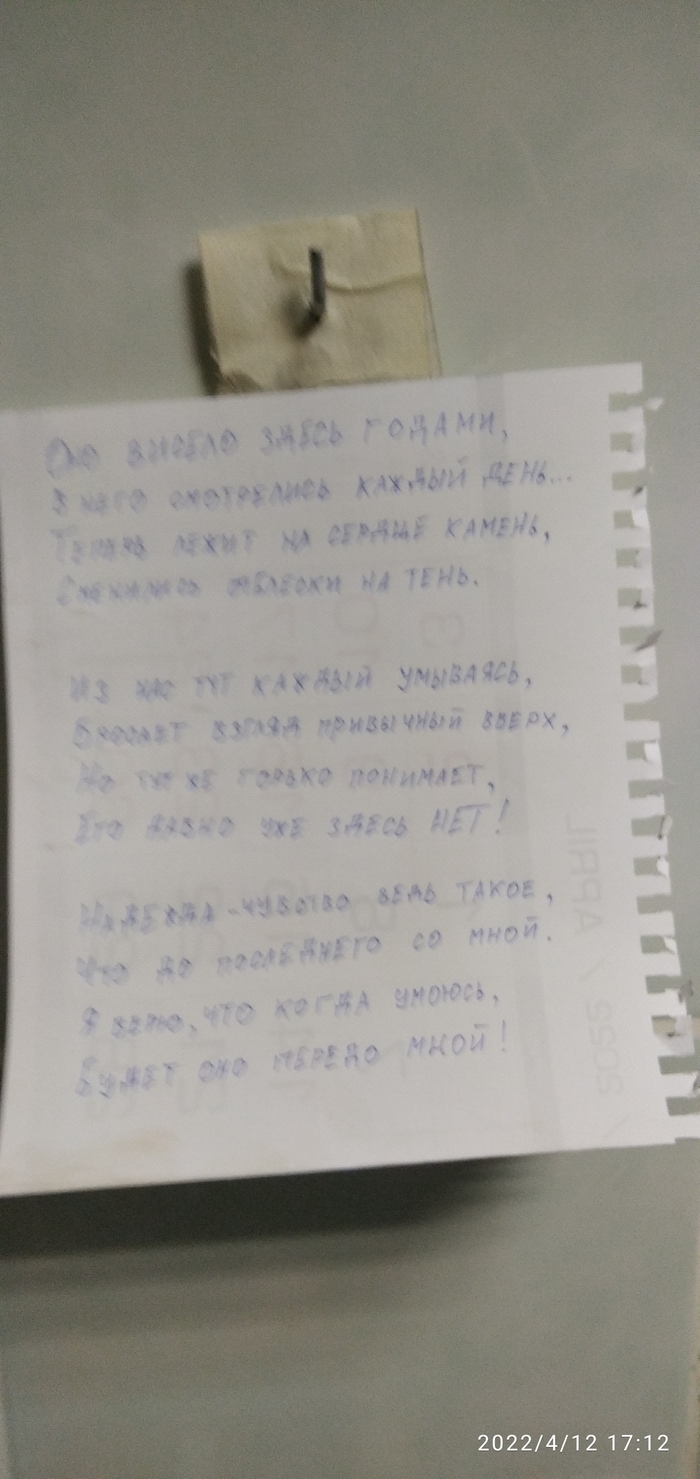 Оно висело здесь годами,
В него смотрелись каждый день...
Теперь лежит на сердце камень,
Сменились отблески на тень.
Из нас тут каждый умываясь,
Бросает взгляд привычный вверх,
Но тут же горько понимает,
Его давно уже здесь нет!
Надежда - чувство ведь такое,
Что до последнего со мной.
Я верю, что когда умоюсь,
Будет оно передо мной!
2022 / APRIL
2022/4/12 17:12